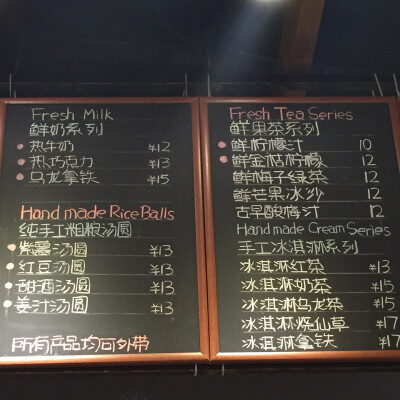 Fresh Milk
鲜奶系列
热牛奶 ¥12
热巧克力 ¥13
乌龙拿铁 ¥15
Hand made Rice Balls
纯手工粗粮汤圆
紫薯汤圆 ¥13
红豆汤圆 ¥13
甜酒汤圆 ¥13
姜汁汤圆 ¥13
所有产品均可外带
Fresh Tea Series
鲜果茶系列
鲜柠檬汁 10
鲜金桔柠檬 12
鲜梅子绿茶 12
鲜芒果冰沙 12
古早酸梅汁 12
Handmade Cream Series
手工冰淇淋系列
冰淇淋红茶 ¥13
冰淇淋奶茶 ¥15
冰淇淋乌龙茶 ¥15
冰淇淋烧仙草 ¥17
冰淇淋拿铁 ¥17